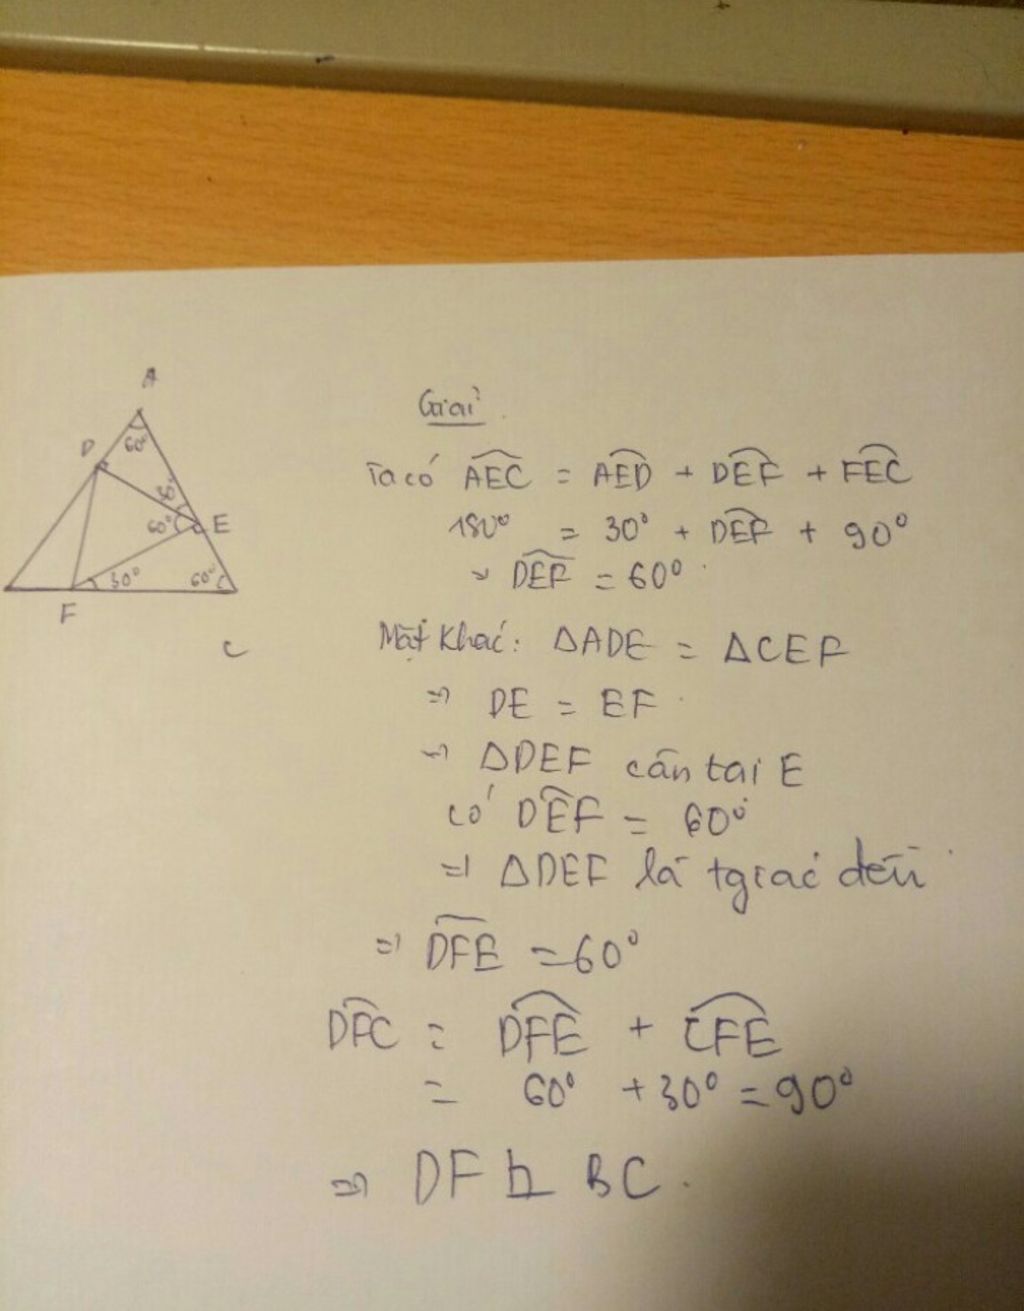 A
D
60°
60°
E
30°
60°
F
C
Giải
Ta có AEC = AED + DEF + FEC
180° = 30° + DEF + 90°
⇒ DEF = 60°
Mặt khác: ΔADE = ΔCEF
⇒ DE = EF
⇒ ΔDEF cân tại E
có DEF = 60°
⇒ ΔDEF là tgiác đều
⇒ DFE = 60°
DFC = DFE + CFE
= 60° + 30° = 90°
⇒ DF ⊥ BC.